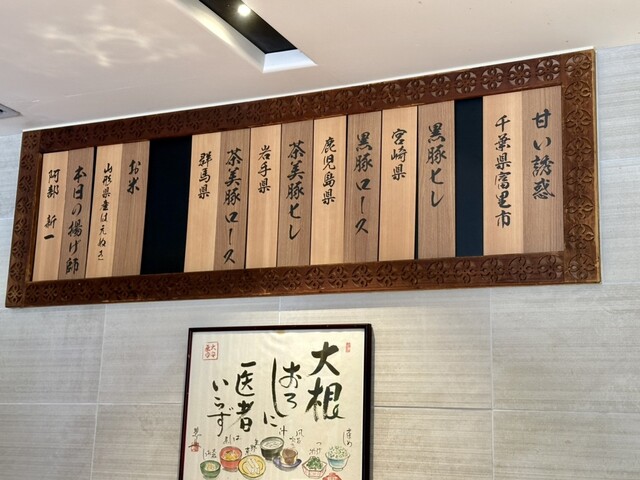 甘い誘惑
千葉県富里市
黒豚ヒレ
宮崎県
黒豚ロース
鹿児島県
茶美豚ヒレ
岩手県
茶美豚ロース
群馬県
お米
山形県産はえぬき
本日の揚げ師
阿部 新一
大根
おろしに
医者
いらず